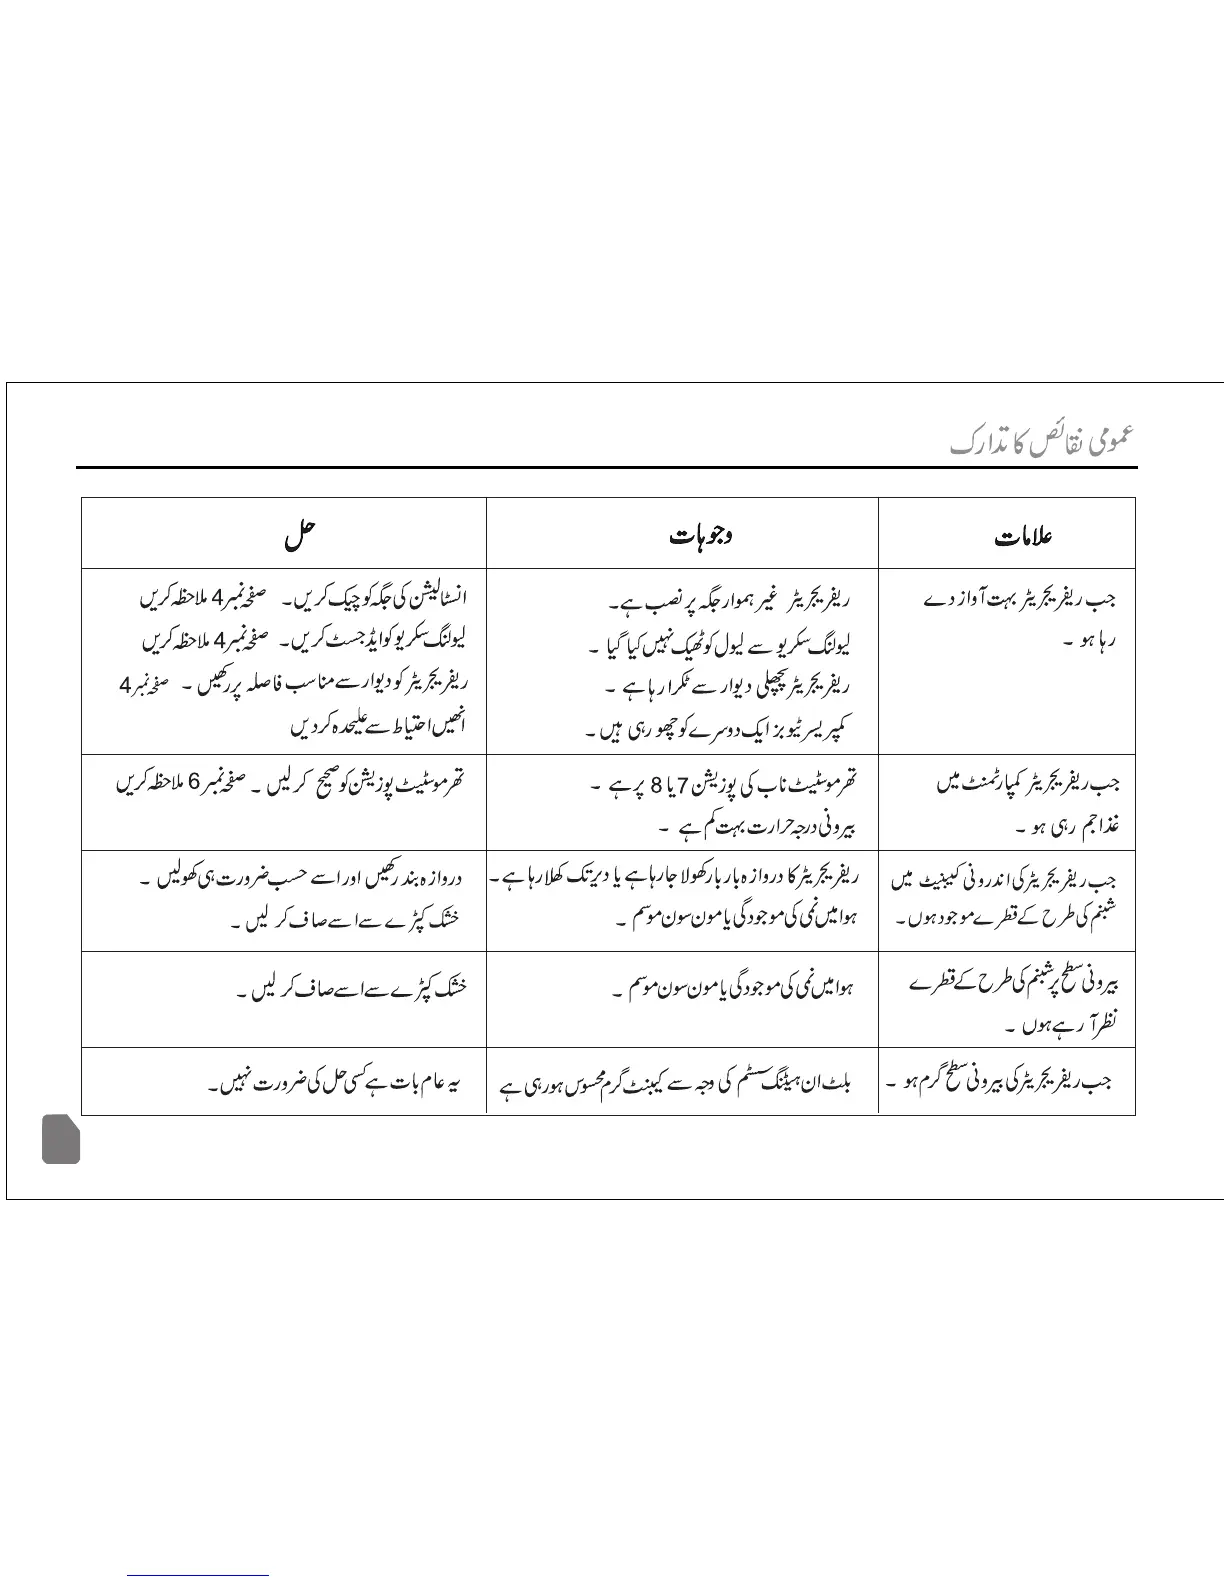 عمومی نقائص کا تدارک
علامات
وجوہات
حل
جب ریفریجریٹر بہت آواز دے
رہا ہو ۔
ریفریجریٹر غیر ہموار جگہ پر نصب ہے۔
لیولنگ سکریو سے لیول کو ٹھیک نہیں کیا گیا ۔
ریفریجریٹر پچھلی دیوار سے ٹکرا رہا ہے ۔
کمپریسر ٹیوبز ایک دوسرے کو چھو رہی ہیں ۔
انسٹالیشن کی جگہ کو چیک کریں۔ صفحہ نمبر 4 ملاحظہ کریں
لیولنگ سکریو کو ایڈجسٹ کریں۔ صفحہ نمبر 4 ملاحظہ کریں
ریفریجریٹر کو دیوار سے مناسب فاصلہ پر رکھیں ۔ صفحہ نمبر 4
انھیں احتیاط سے علیحدہ کر دیں
جب ریفریجریٹر کمپارٹمنٹ میں
غذا جم رہی ہو ۔
تھرموسٹیٹ ناب کی پوزیشن 7 یا 8 پر ہے ۔
بیرونی درجہ حرارت بہت کم ہے ۔
تھرموسٹیٹ پوزیشن کو صحیح کر لیں ۔ صفحہ نمبر 6 ملاحظہ کریں
جب ریفریجریٹر کی اندرونی کیبنیٹ میں
شبنم کی طرح کے قطرے موجود ہوں ۔
ریفریجریٹر کا دروازہ بار بار کھولا جا رہا ہے یا دیر تک کھلا رہا ہے ۔
ہوا میں نمی کی موجودگی یا مون سون موسم ۔
دروازہ بند رکھیں اور اسے حسب ضرورت ہی کھولیں ۔
خشک کپڑے سے اسے صاف کر لیں ۔
بیرونی سطح پر شبنم کی طرح کے قطرے
نظر آ رہے ہوں ۔
ہوا میں نمی کی موجودگی یا مون سون موسم ۔
خشک کپڑے سے اسے صاف کر لیں ۔
جب ریفریجریٹر کی بیرونی سطح گرم ہو ۔
بلٹ ان ہیٹنگ سسٹم کی وجہ سے کیبنٹ گرم محسوس ہو رہی ہے
یہ عام بات ہے کسی حل کی ضرورت نہیں۔